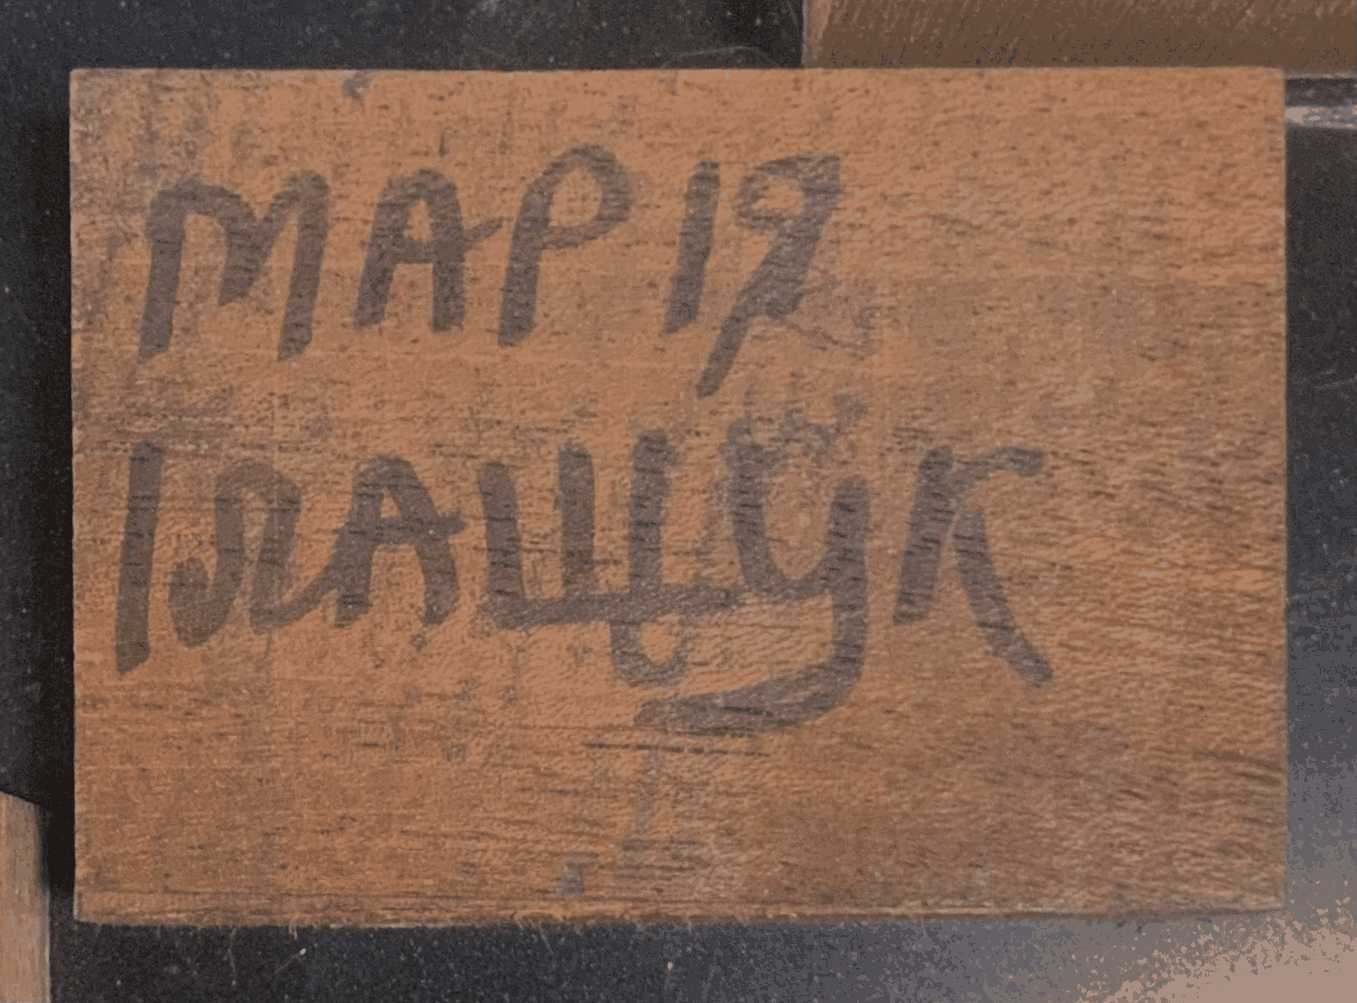 МАРІЯ
ІЛАЩУК